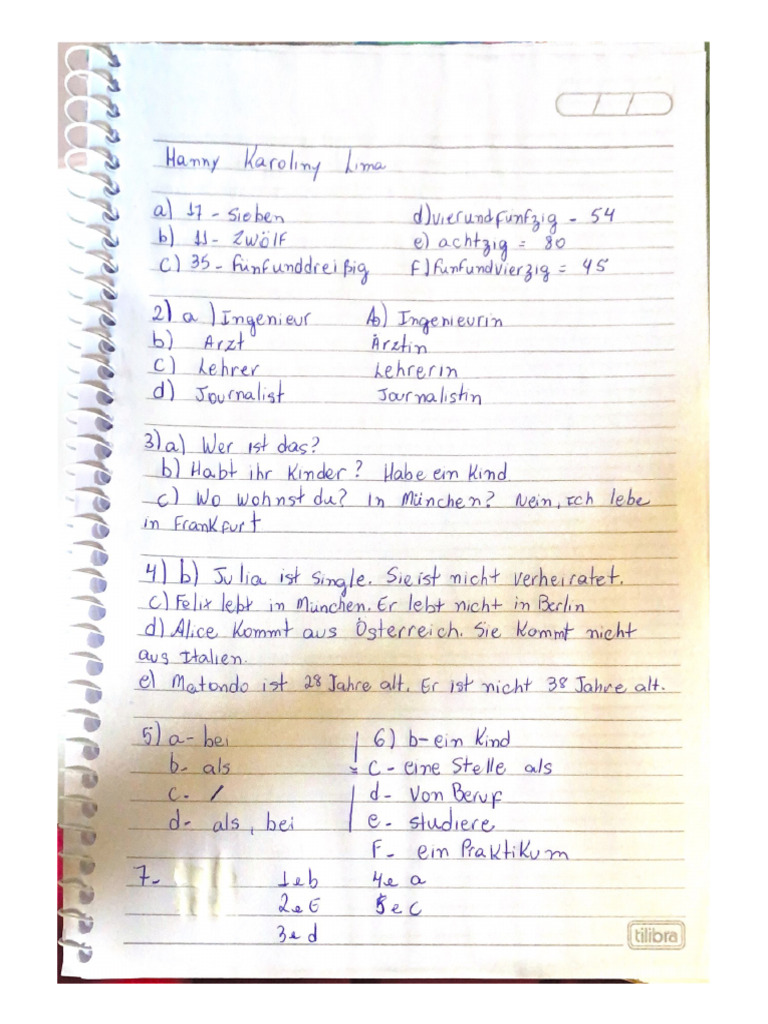 Hanny Karoliny Lima
a) 17 - Sieben d) vierundfunfzig - 54
b) 11 - Zwölf e) achtzig = 80
c) 35 - fünfunddreißig f) funfundvierzig = 45
2) a) Ingenieur Ab) Ingenieurin
b) Arzt Ärztin
c) Lehrer Lehrerin
d) Journalist Journalistin
3) a) Wer ist das?
b) Habt ihr Kinder? Habe ein Kind
c) Wo wohnst du? In München? Nein, Ich lebe
in Frankfurt
4) b) Julia ist single. Sie ist nicht verheiratet.
c) Felix lebt in München. Er lebt nicht in Berlin
d) Alice kommt aus Österreich. Sie kommt nicht
aus Italien.
e) Matondo ist 28 Jahre alt. Er ist nicht 38 Jahre alt.
5) a - bei 6) b - ein Kind
b - als c - eine Stelle als
c - / d - Von Beruf
d - als, bei e - studiere
F - ein Praktikum
7 - 1 e b 4 e a
2 e E 5 e C
3 e d
tilibra